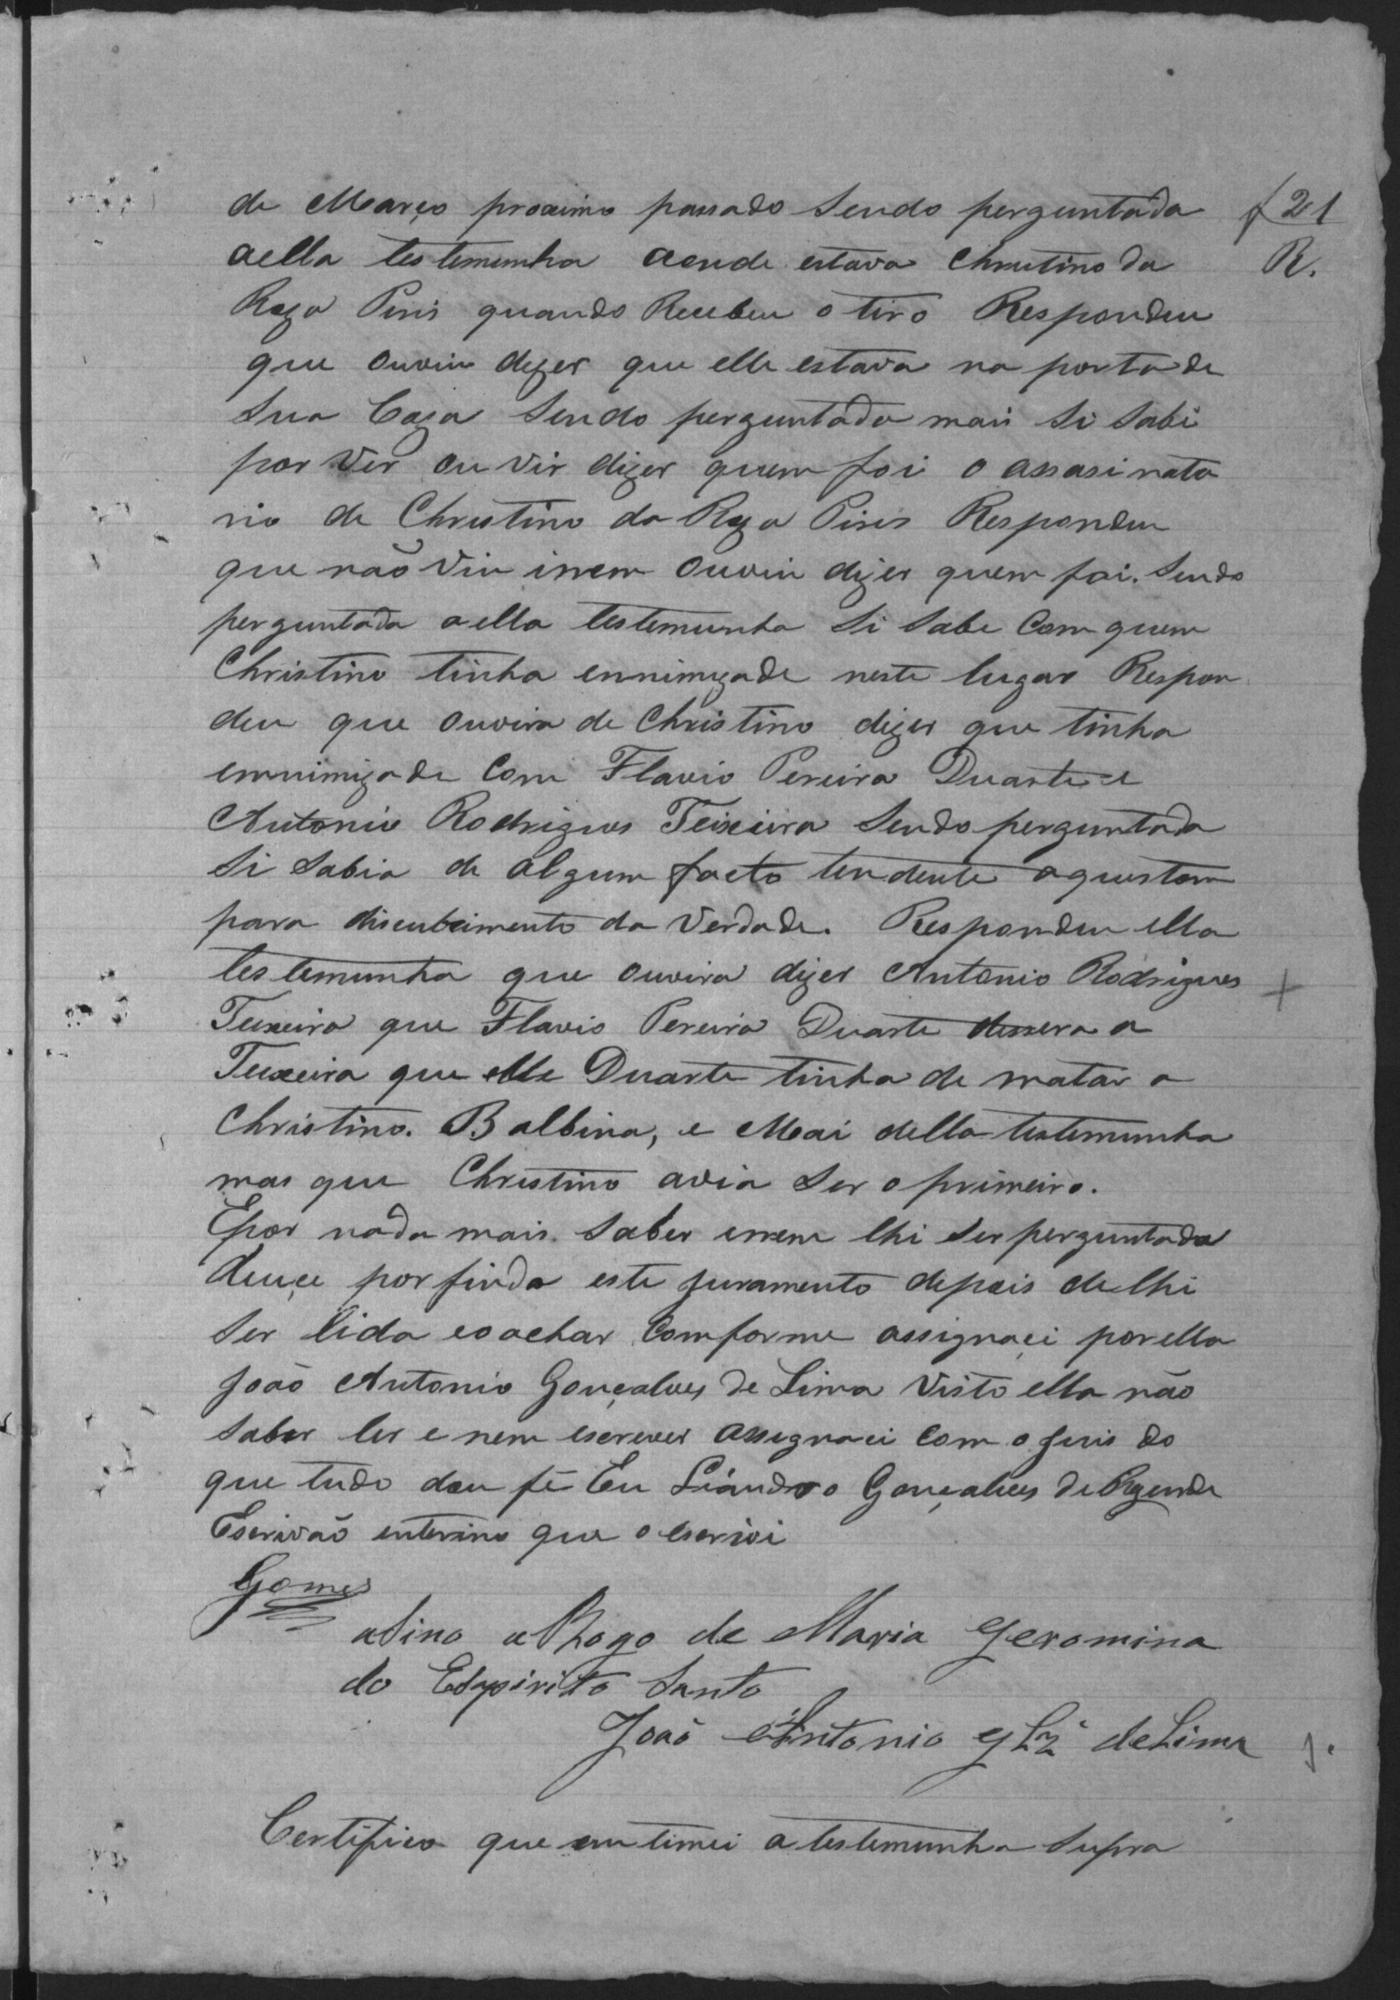 de Março proximo passado Sendo perguntada f 21
aella testemunha aonde estava Christino da R.
Roza Piris quando Recebeu o tiro Respondeu
que ouviu dizer que elle estava na porta de
Sua Caza Sendo perguntada mais Si Sabi
por Ver ou vir dizer quem foi o assasinato
rio de Christino da Roza Piris Respondeu
que não Viu inem ouviu dizer quem foi. Sendo
perguntada aella testemunha Si Sabe Com quem
Christino tinha ennimizade neste lugar Respon
deu que ouvira de Christino dizer que tinha
ennimizade Com Flavio Pereira Duarte e
Antonio Rodrigues Teixeira Sendo perguntada
Si Sabia de algum facto tendente aquestam
para discubrimento da Verdade. Respondeu ella
testemunha que ouvira dizer Antonio Rodrigues
Teixeira que Flavio Pereira Duarte dissera a
Teixeira que elle Duarte tinha de matar a
Christino. Balbina, e Mai della testemunha
mas que Christino avia Ser o primeiro.
Epor nada mais Saber enem lhi Ser perguntada
deuçe por finda este juramento depois de lhi
Ser lida eoachar Comforme assignaçi por ella
João Antonio Gonçalves de Lima Visto ella não
Saber ler e nem escrever assegnaci Com o juis do
que tudo dou fé Eu Liándro Gonçalves de Rezende
Escrivão enterino que o escrivi
Gomes
aSino a Rogo de Maria Geromina
do Espirito Santo
João Antonio Glz de Lima
Certifico que em timei a testemunha Supra